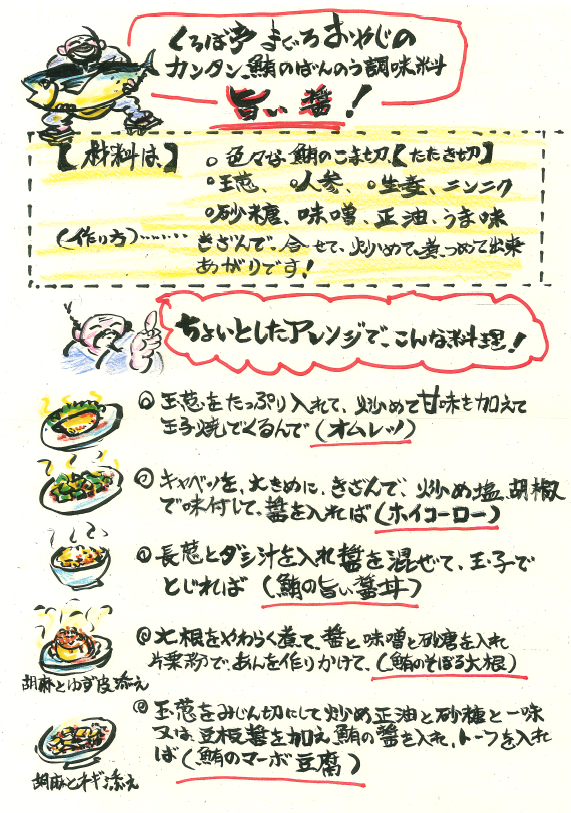 くろば亭まぐろおやじの
カンタン、鮪のばんのう調味料
旨い醤!
【材料は】
○色々な鮪のこま切【たたき切】
○玉葱、○人参、○生姜、ニンニク
○砂糖、味噌、正油、うま味
(作り方)………
きざんで、合せて、炒めて煮つめて出来
あがりです!
ちょいとしたアレンジで、こんな料理!
○玉葱をたっぷり入れて、炒めて甘味を加えて
玉子焼でくるんで(オムレツ)
○キャベツを、大きめに、きざんで、炒め塩、胡椒
で味付して、醤を入れば(ホイコーロー)
○長葱とダシ汁を入れ醤を混ぜて、玉子で
とじれば(鮪の旨い醤丼)
○大根をやわらく煮て、醤と味噌と砂唐を入れ
片栗粉で、あんを作りかけて、(鮪のそぼろ大根)
胡麻とゆず皮添え
○玉葱をみじん切にして炒め正油と砂糖と一味
又は、豆板醤を加え鮪の醤を入れ、トーフを入れ
ば(鮪のマーボ豆腐)
胡麻とネギ添え